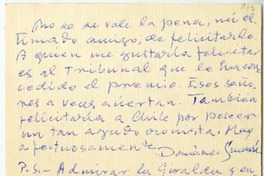 No se vale la pena, mi es
timado amigo, de felicitarlo.
A quien me gustaría felicitar
es al Tribunal que le ha con
cedido el premio. Esos seño
res a veces aciertan. También
felicitaría a Chile por poseer
un tan agudo cronista. Muy
afectuosamente
P.S.- Admirar la Giralda y en